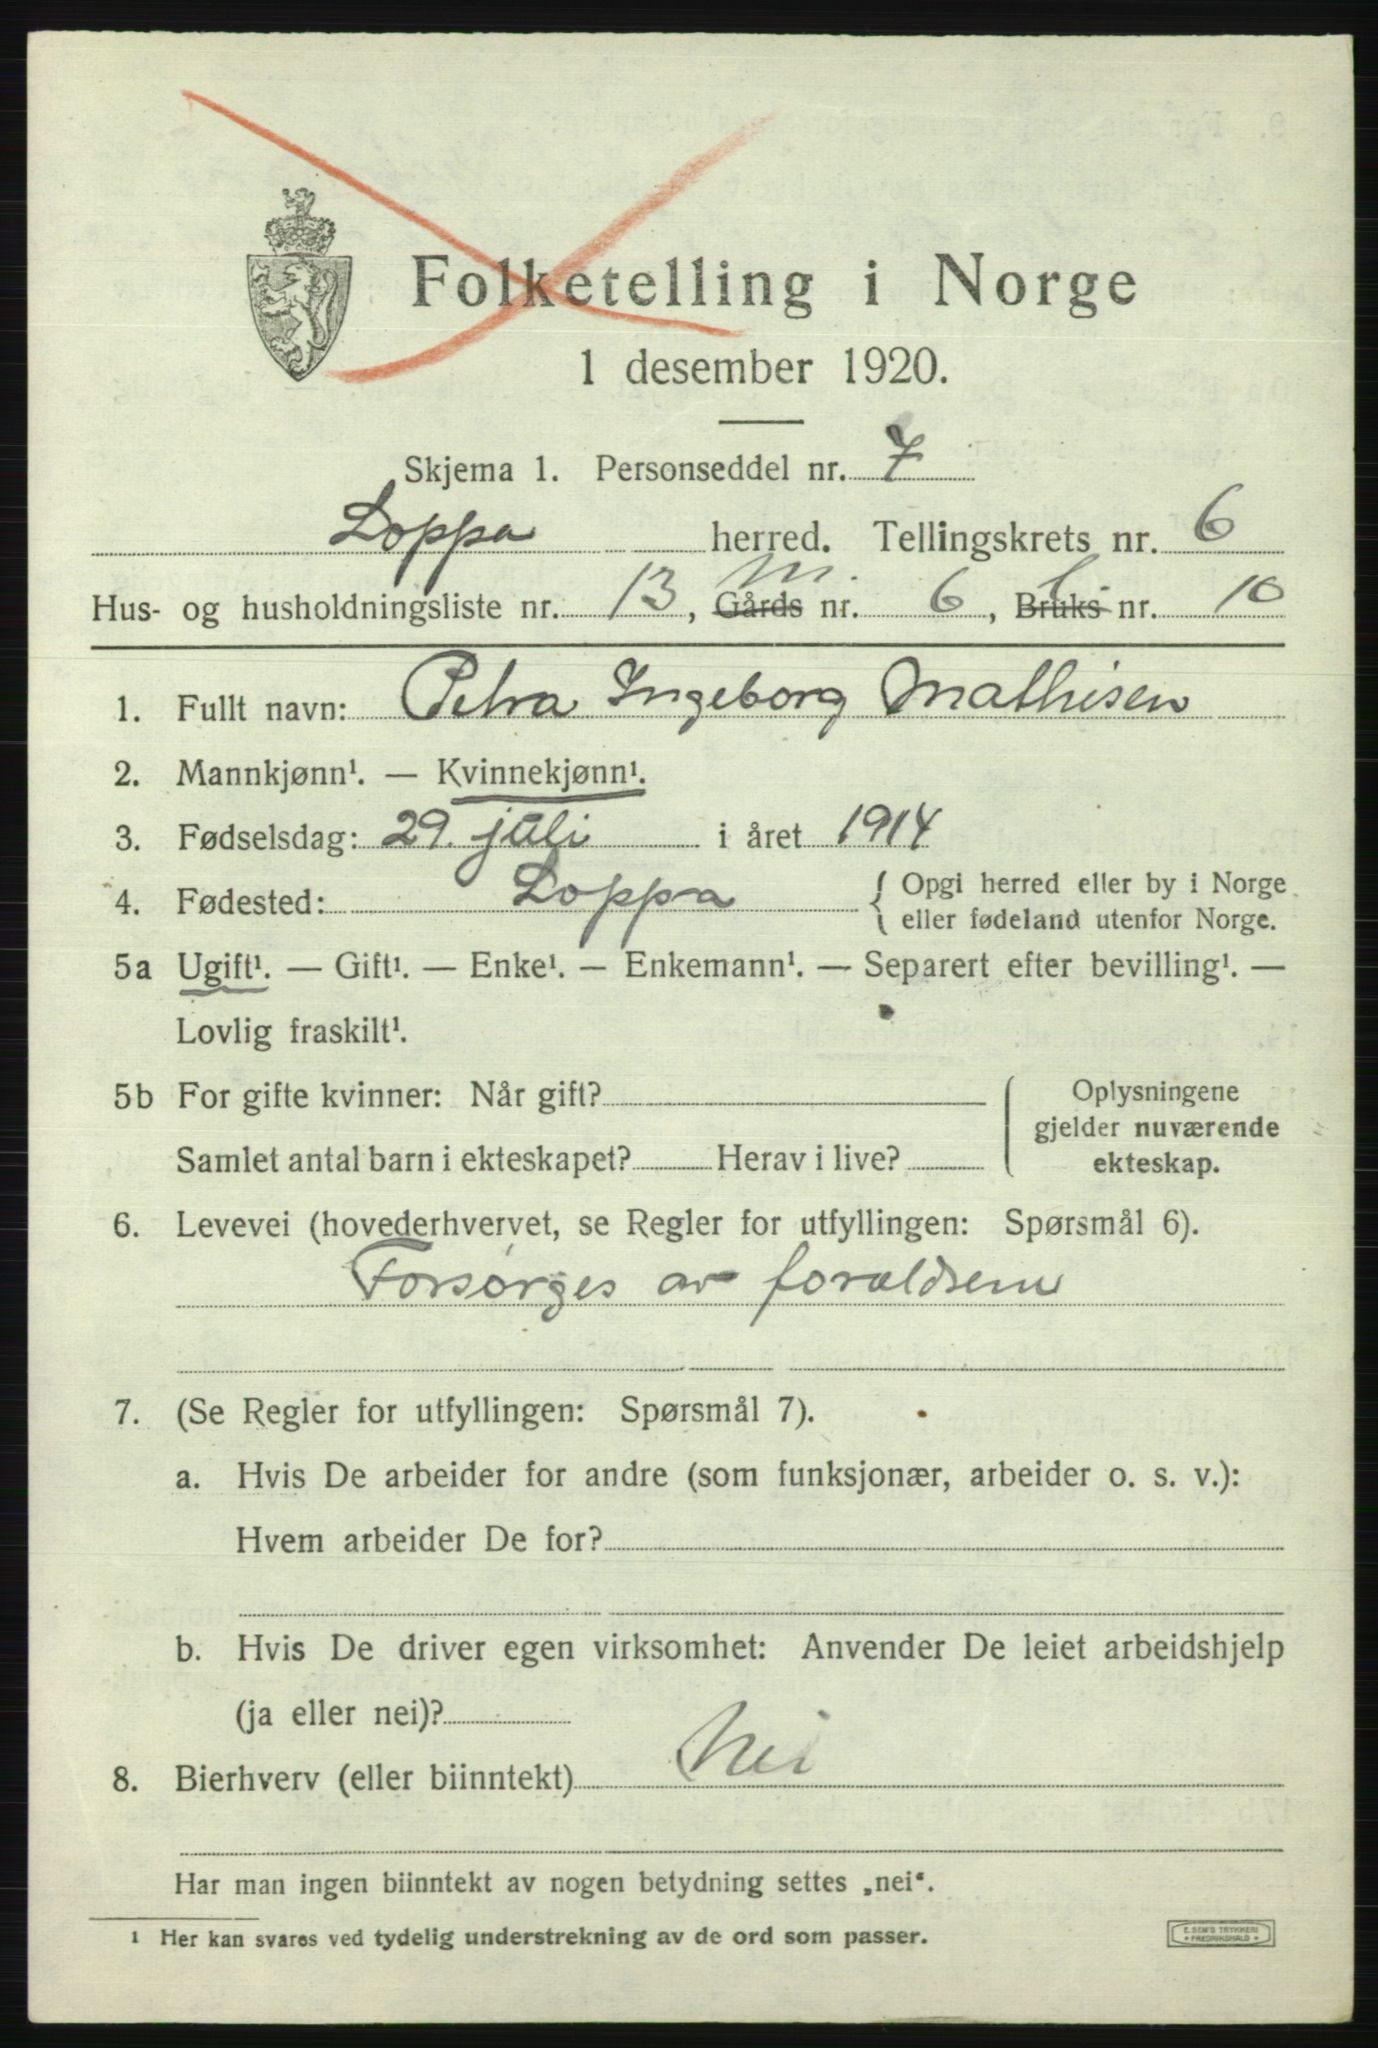 Folketelling i Norge
1 desember 1920.
Skjema 1. Personseddel nr. 7
Loppa herred. Tellingskrets nr. 6
m. L.
Hus- og husholdningsliste nr. 13, Gårds nr. 6, Bruks nr. 10
1. Fullt navn: Petra Ingeborg Mathisen
2. Mannkjønn¹. — Kvinnekjønn¹.
3. Fødselsdag: 29. juli i året 1914
4. Fødested: Loppa { Opgi herred eller by i Norge
eller fødeland utenfor Norge.
5a Ugift¹. — Gift¹. — Enke¹. — Enkemann¹. — Separert efter bevilling¹. —
Lovlig fraskilt¹.
5b For gifte kvinner: Når gift?
Samlet antal barn i ekteskapet? Herav i live?
Oplysningene
gjelder nuværende
ekteskap.
6. Levevei (hovederhvervet, se Regler for utfyllingen: Spørsmål 6).
Forsørges av foraldrene
7. (Se Regler for utfyllingen: Spørsmål 7).
a. Hvis De arbeider for andre (som funksjonær, arbeider o. s. v.):
Hvem arbeider De for?
b. Hvis De driver egen virksomhet: Anvender De leiet arbeidshjelp
(ja eller nei)?
8. Bierhverv (eller biinntekt) Nei
Har man ingen biinntekt av nogen betydning settes „nei“.
¹ Her kan svares ved tydelig understrekning av de ord som passer.
E. SEM'S TRYKKERI
* FREDRIKSHALD *